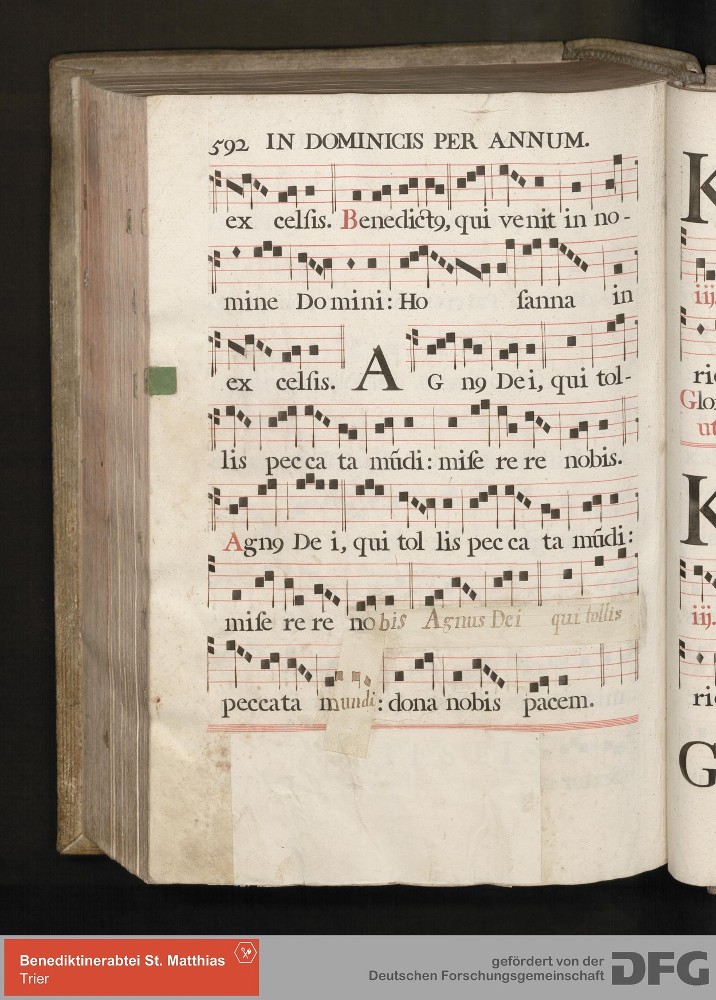 592 IN DOMINICIS PER ANNUM.
ex celſis. Benedictꝰ, qui venit in no-
mine Domini: Ho ſanna in
ex celſis. A G nꝰ Dei, qui tol-
lis pecca ta mũdi: miſe rere nobis.
Agnꝰ De i, qui tol lis pec ca ta mũdi:
miſe re re nobis Agnus Dei qui tollis
peccata mundi: dona nobis pacem.
K
iij.
ric
Glo
ut
K
iij.
ric
G
Benediktinerabtei St. Matthias
Trier
gefördert von der
Deutschen Forschungsgemeinschaft
DFG